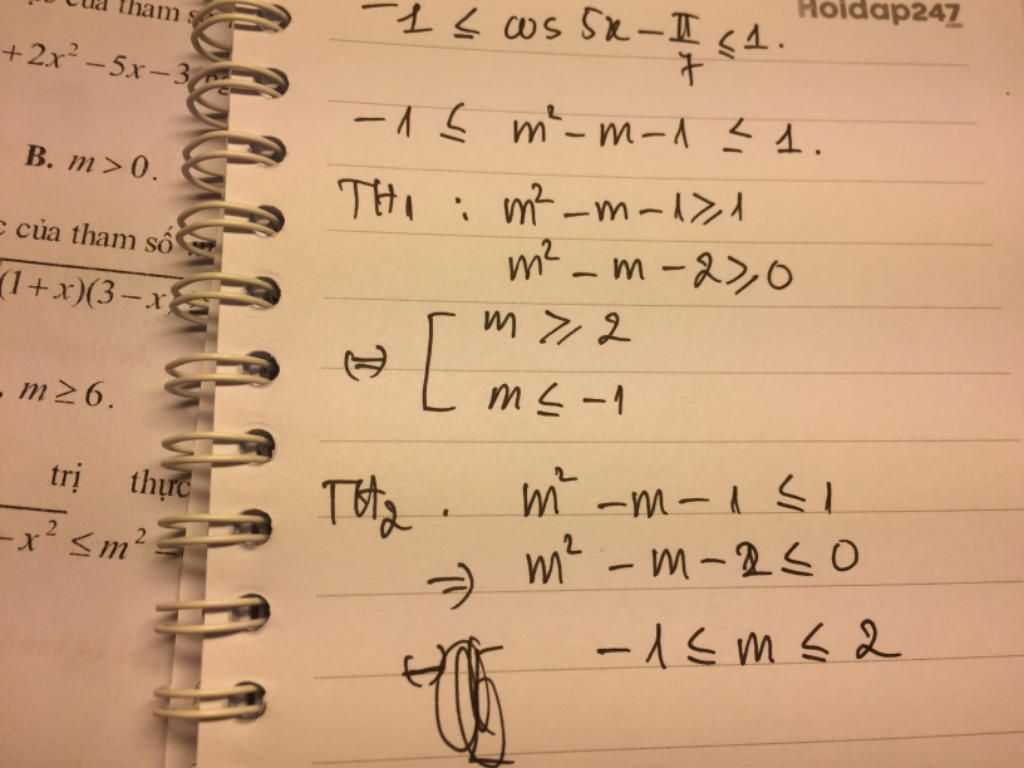 của tham số
+ 2x² − 5x − 3
B. m > 0.
của tham số
(1+x)(3−x)
m ≥ 6.
trị thực
−x² ≤ m² −
Hoidap247
−1 ≤ cos 5x − π/7 ≤ 1.
−1 ≤ m² − m − 1 ≤ 1.
TH1 : m² − m − 1 ≥ 1
m² − m − 2 ≥ 0
⇔ [ m ≥ 2
m ≤ −1
TH2 . m² − m − 1 ≤ 1
⇒ m² − m − 2 ≤ 0
−1 ≤ m ≤ 2